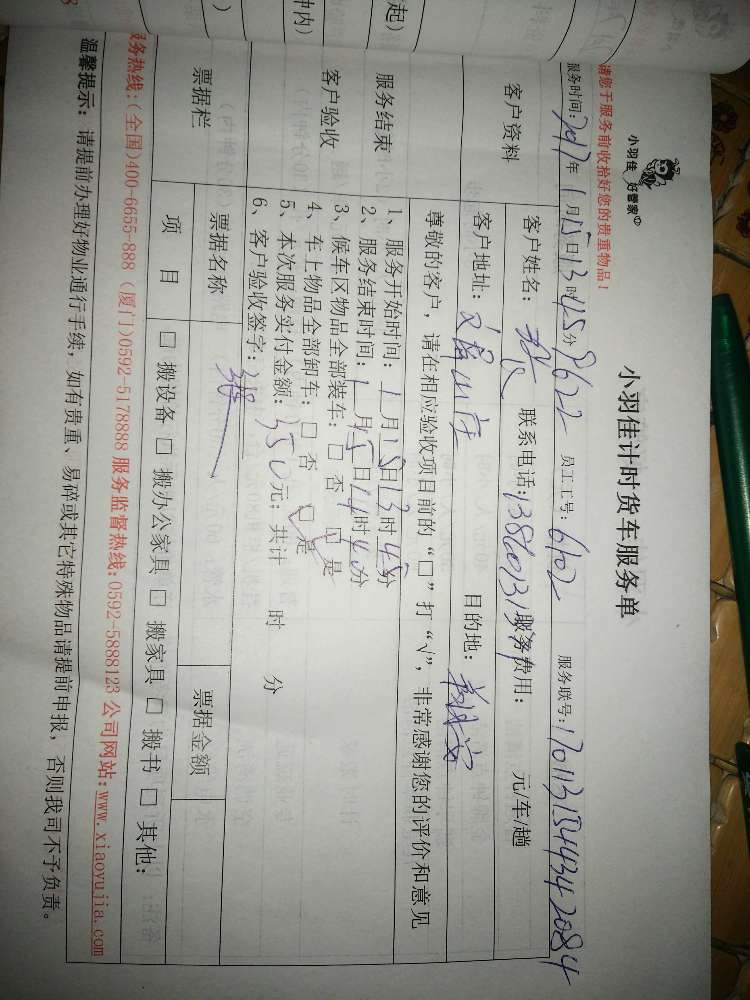 小羽佳 好管家
小羽佳计时货车服务单
请您于服务前收拾好您的贵重物品！
服务时间：2017年1月15日13时45分 9622 员工工号：6102 服务联号：1701131544342084
客户资料
客户姓名： 联系电话：1386031 服务费用： 元/车/趟
客户地址： 目的地：
尊敬的客户，请在相应验收项目前的“□”打“√”，非常感谢您的评价和意见
服务结束
客户验收
1、服务开始时间：1月15日13时45分
2、服务结束时间：1月15日14时40分
3、候车区物品全部装车：□ 否 □ 是
4、车上物品全部卸车：□ 否 □ 是
5、本次服务实付金额：350元；共计 时 分
6、客户验收签字：张
票据栏
票据名称 票据金额
项 目 □ 搬设备 □ 搬办公家具 □ 搬家具 □ 搬书 □ 其他：
服务热线：(全国)400-6655-888 (厦门)0592-5178888 服务监督热线：0592-5888123 公司网站：www.xiaoyujia.com
温馨提示：请提前办理好物业通行手续，如有贵重、易碎或其它特殊物品请提前申报，否则我司不予负责。